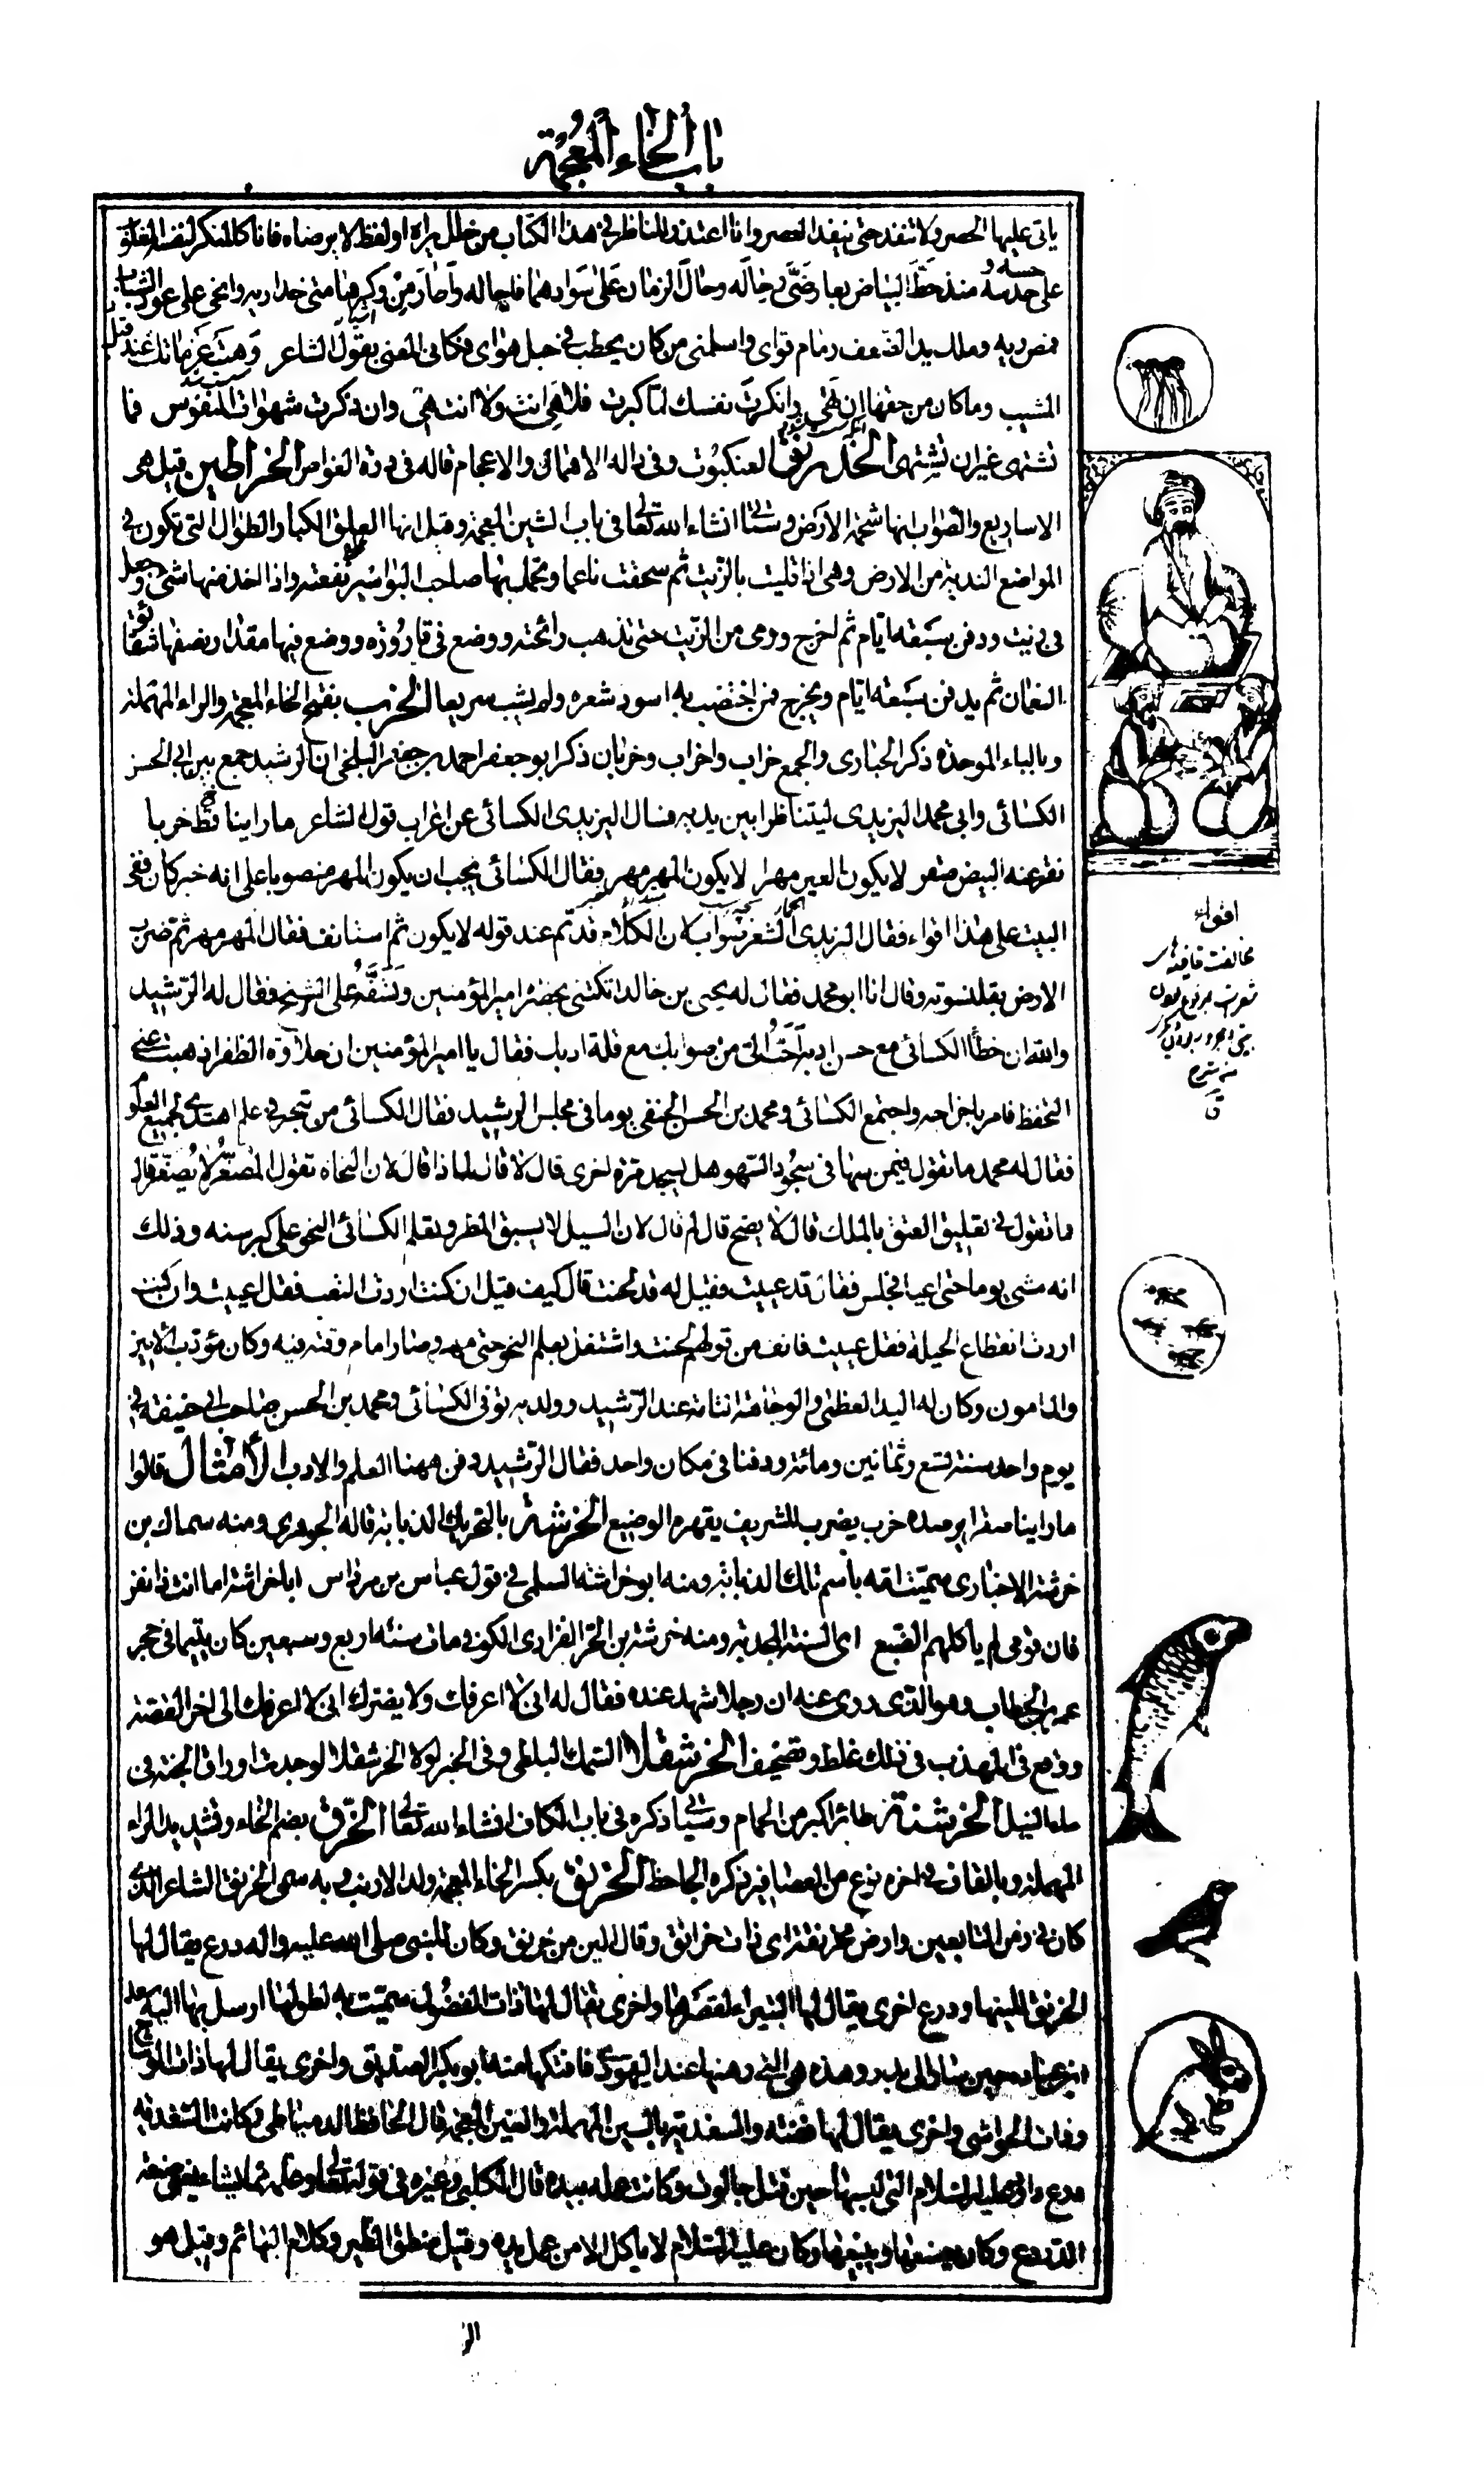 باب الخاء المعجمة
ياتى عليها الحصر ولا تنفد حتى ينفد العصر وانا اعتذر للناظر فى هذا الكتاب من خلل يراه او لفظ لا يرضاه فانا كالمنكر لنفسه المغلوب
على حدسه وحسه منذ خط البياض بعارضى رحاله وحال الزمان على سوادهما فاحاله واطار من وكرها منى خدارية وانحى على عود الشباب
فمص ريه وملك يد الضعف زمام قواى واسلمنى من كان يحطب فى حبل هواى فكانى المعنى بقول الشاعر وهت عزماتك عند
المشيب وما كان من حقها ان تهى وانكرت نفسك لما كبرت فلا هى انت ولا انت هى وان ذكرت شهوات النفوس فما
تشتهى غير ان تشتهى الخدرنق العنكبوت وفى داله الاهمال والاعجام قاله فى درة الغواص الخراطين قيل هى
الاساريع والصواب انها شحمة الارض وستاتى انشاء الله تعالى فى باب الشين المعجمة وقيل انها العلق الكبار الطوال التى تكون فى
المواضع الندية من الارض وهى اذا قليت بالزيت ثم سحقت ناعما وتحمل بها صاحب البواسير نفعته واذا اخذ منها شىء وجعل
فى زيت ودفن سبعة ايام ثم اخرج ورمى من الزيت حتى تذهب رائحته ووضع فى قارورة ووضع فيها مقدار نصفها شقائق
النعمان ثم يدفن سبعة ايام ويخرج فمن اختضب به اسود شعره ولم يشب سريعا الخرب بفتح الخاء المعجمة والراء المهملة
وبالباء الموحدة ذكر الحبارى والجمع خراب واخراب وخربان ذكر ابو جعفر احمد بن جعفر البلخى ان الرشيد جمع بين ابى الحسن
الكسائى وابى محمد اليزيدى ليتناظرا بين يديه فسال اليزيدى الكسائى عن اعراب قول الشاعر ما راينا قط خربا
نقر عنه البيض صقر لا يكون العير مهرا لا يكون المهر مهر فقال الكسائى يجب ان يكون المهر منصوبا على انه خبر كان ففى
البيت على هذا اقواء فقال اليزيدى الشعر صواب لان الكلام قد تم عند قوله لا يكون ثم استانف فقال المهر مهر ثم ضرب
الارض بقلنسوته وقال انا ابو محمد فقال له يحيى بن خالد اتكتنى بحضرة امير المؤمنين وتسفه على الشيخ فقال له الرشيد
والله ان خطأ الكسائى مع حسن ادبه احب الى من صوابك مع قلة ادبك فقال يا امير المؤمنين ان حلاوة الظفر اذهبت عنى
التحفظ فامر باخراجه واجتمع الكسائى ومحمد بن الحسن الحنفى يوما فى مجلس الرشيد فقال الكسائى من تبحر فى علم اهتدى لجميع العلوم
فقال له محمد ما تقول فيمن سها فى سجود السهو هل يسجد مرة اخرى قال لا قال لماذا قال لان النحاة تقول المصغر لا يصغر قال
فما تقول فى تعليق العتق بالملك قال لا يصح قال لم قال لان السيل لا يسبق المطر وتعلم الكسائى النحو على كبر سنه وذلك
انه مشى يوما حتى اعيا فجلس فقال قد عييت فقيل له قد لحنت قال كيف قيل ان كنت اردت التعب فقل اعييت وان كنت
اردت انقطاع الحيلة فقل عييت فانف من قولهم لحنت واشتغل بعلم النحو حتى مهر وصار امام وقته فيه وكان مؤدب الامين
والمامون وكان له اليد العظمى والوجاهة التامة عند الرشيد وولديه توفى الكسائى ومحمد بن الحسن صاحب ابى حنيفة فى
يوم واحد سنة تسع وثمانين ومائة ودفنا فى مكان واحد فقال الرشيد دفن ههنا العلم والادب الامثال قالوا
ما راينا صقرا يرصده خرب يضرب للشريف يقهره الوضيع الخرشة بالتحريك الذبابة قاله الجوهرى ومنه سماك بن
خرشة الاخبارى سميت امه باسم تلك الذبابة ومنه ابو خراشة السلمى فى قول عباس بن مرداس ابا خراشة اما انت ذا نفر
فان قومى لم ياكلهم الضبع اى السنة المجدبة ومنه خرشة بن الحر الفزارى الكوفى مات سنة اربع وسبعين كان يتيما فى حجر
عمر بن الخطاب وهو الذى روى عنه ان رجلا شهد عنده فقال له انى لا اعرفك ولا يضرك انى لا اعرفك الى اخر القصة
ووقع فى المهذب فى ذلك غلط وتصحيف الخرشقلا السمك البلطى وفى الخبر لولا الخرشقلا لوجدت اوراق الجنة فى
ماء النيل الخرشنة طائر اكبر من الحمام وسياتى ذكره فى باب الكاف انشاء الله تعالى الخرق بضم الخاء وتشديد الراء
المهملة وبالقاف فى اخره نوع من العصافير ذكره الجاحظ الخرنق بكسر الخاء المعجمة ولد الارنب وبه سمى الخرنق الشاعر الذى
كان فى زمن التابعين وارض مخرنقة اى ذات خرانق وقال الين من خرنق وكان للنبى صلى الله عليه واله درع يقال لها
الخرنق للينها ودرع اخرى يقال لها البتراء لقصرها واخرى يقال لها ذات الفضول سميت به لطولها ارسل بها اليه
سعد بن عبادة حين سار الى بدر وهذه هى التى رهنها عند اليهودى فافتكها منه ابو بكر الصديق واخرى يقال لها ذات الوشاح
وذات الحواشى واخرى يقال لها فضة والسغدية بالسين المهملة والغين المعجمة قال الحافظ الدمياطى وكانت السغدية
درع داود عليه السلام التى لبسها حين قتل جالوت وكانت عمله بيده قال الكلبى وغيره فى قوله تعالى وعلمه مما يشاء يعنى صنعة
الدروع وكان يصنعها ويبيعها وكان عليه السلام لا ياكل الا من عمل يده وقيل منطق الطير وكلام البهائم وقيل هو
اقواء
مخالفت قافيه